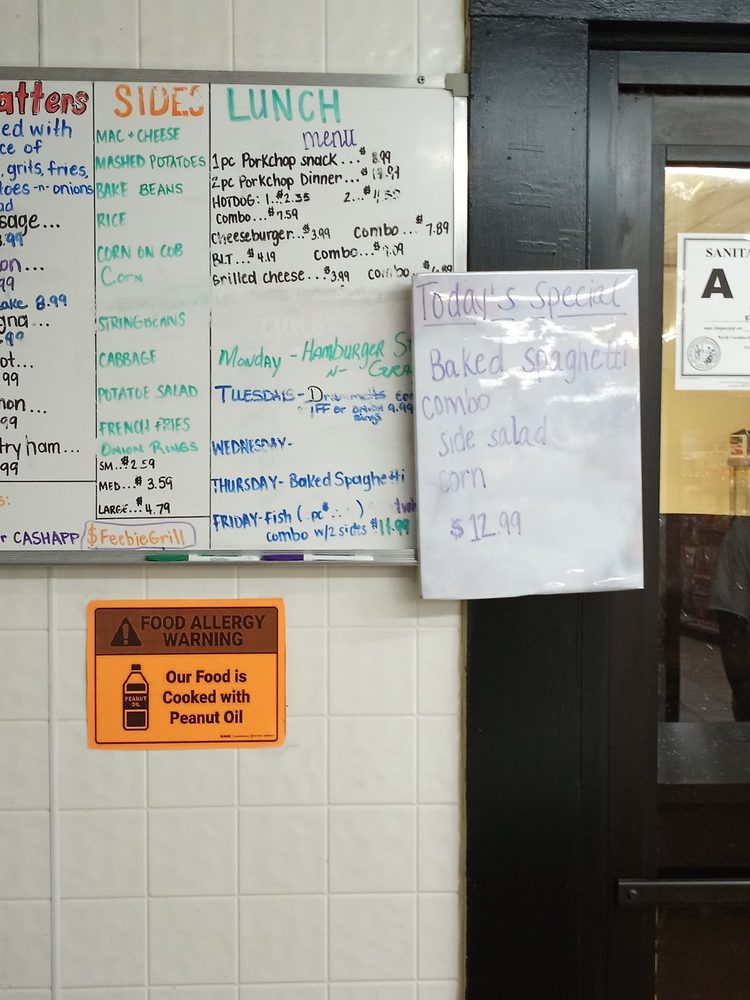 attens
ed with
ce of
, grits, fries,
toes -n- onions
ad
sage...
.99
on...
99
ake 8.99
gna...
ot...
99
non...
99
try ham...
99
S:
r CASHAPP $FeebieGrill
SIDES
MAC + CHEESE
MASHED POTATOES
BAKE BEANS
RICE
CORN ON COB
CORN
STRINGBEANS
CABBAGE
POTATOE SALAD
FRENCH FRIES
ONION RINGS
SM...$2.59
MED...$3.59
LARGE...$4.79
LUNCH
menu
1pc Porkchop snack...$8.99
2pc Porkchop Dinner...$
HOTDOG: 1..$2.35 2...$
Combo...$7.59
Cheeseburger...$3.99 Combo...$7.89
BLT...$4.19 Combo...$
Grilled cheese...$3.99 combo
Monday - HAMBURGER
-N- GRA
TUESDAYS-
FF or onion 9.99
rings
WEDNESDAY-
THURSDAY- Baked Spaghetti
FRIDAY- Fish ( pc )
combo w/2 sides $11.99
Today's Special
Baked spaghetti
combo
side salad
corn
$12.99
SANITA
A
FOOD ALLERGY
WARNING
PEANUT
OIL
Our Food is
Cooked with
Peanut Oil